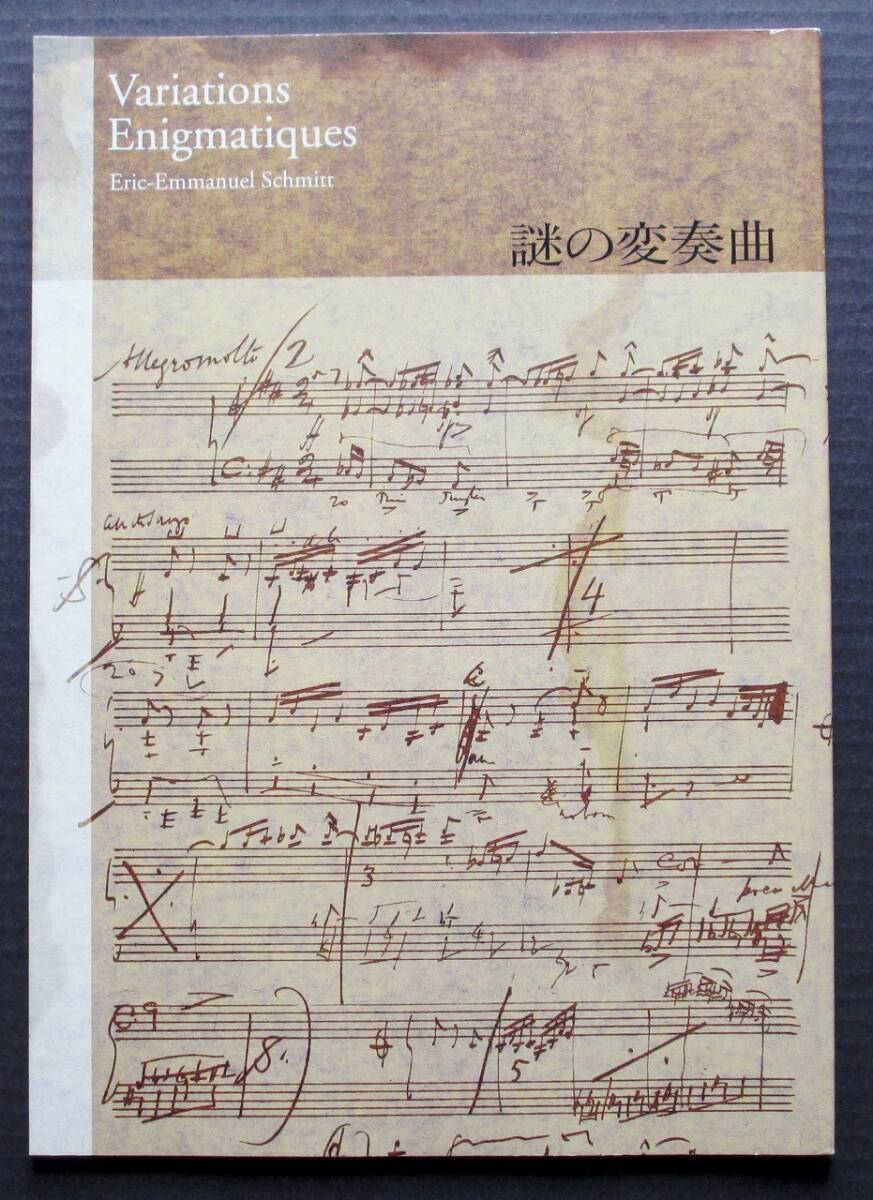 Variations
Enigmatiques
Eric-Emmanuel Schmitt
謎の変奏曲
Allegro molto
2
4
3
8.
5